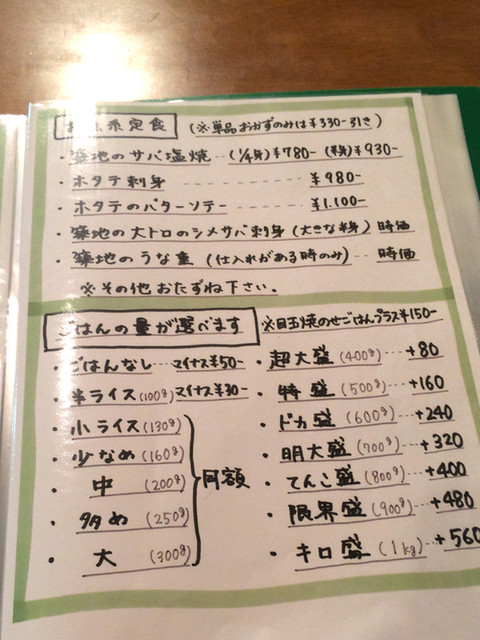 お魚系定食 (※単品おかずのみは¥330-引き)
・築地のサバ塩焼--(1/4身)¥780- (半身)¥930-
・ホタテ刺身 ---------- ¥980-
・ホタテのバターソテー ------ ¥1.100-
・築地の大トロのシメサバ刺身(大きな半身) 時価
・築地のうな重 (仕入れがある時のみ)---- 時価
※その他おたずね下さい。
ごはんの量が選べます ※目玉焼のせごはんプラス¥150-
・ごはんなし---マイナス¥50-
・半ライス(100g)マイナス¥30-
・小ライス(130g)
・少なめ(160g)
・中(200g)
・多め(250g)
・大(300g)
同額
・超大盛(400g)---+80
・特盛(500g)---+160
・ドカ盛(600g)---+240
・明大盛(700g)---+320
・てんこ盛(800g)---+400
・限界盛(900g)---+480
・キロ盛(1kg)---+560